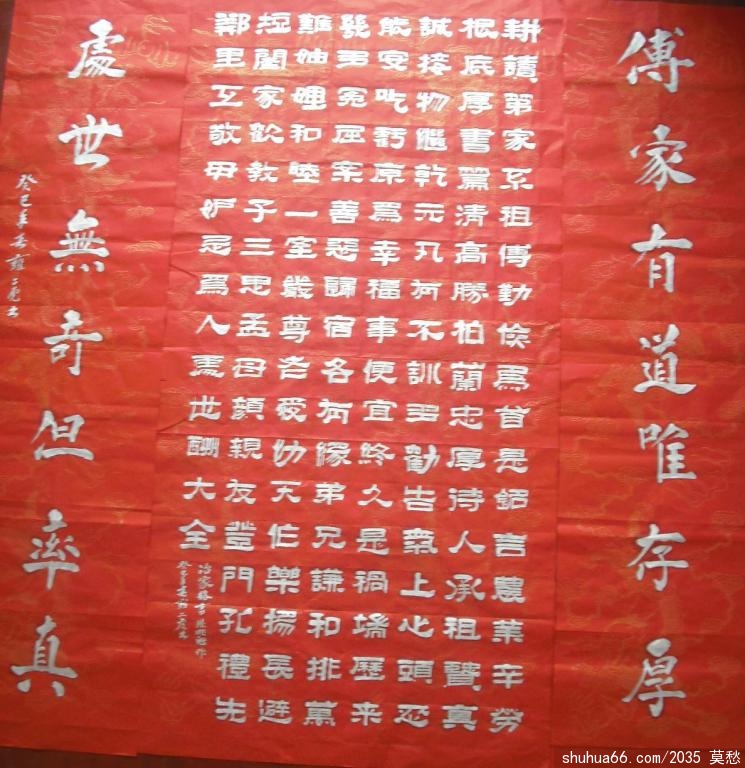 傳家有道唯存厚
耕讀第家久祖傳勤儉為首是銘言農業辛勞
根底厚書篇清高勝柏蘭忠厚待人承祖賢真
誠接物繼乾元凡有不訓多勸告氣上心頭忍
能安吃虧原爲幸福事便宜終久是禍端歷來
幾多冤屈案善惡歸宿各有緣弟兄謙和排萬
難妯娌和睦一室嚴尊老愛幼天伯樂揚長避
短闔家歡教子三思孟母顏親友登門孔禮先
鄰里互敬毋妒忌爲人處世酬大全
治家格言
癸巳年春
處世無奇但率真
癸巳年春
shuhua66.com/2035 莫愁